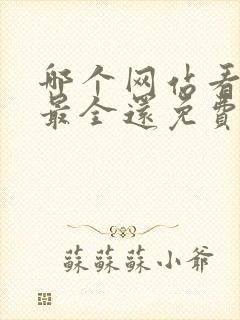 哪个网站看
最全还免费
蘇蘇蘇小爺